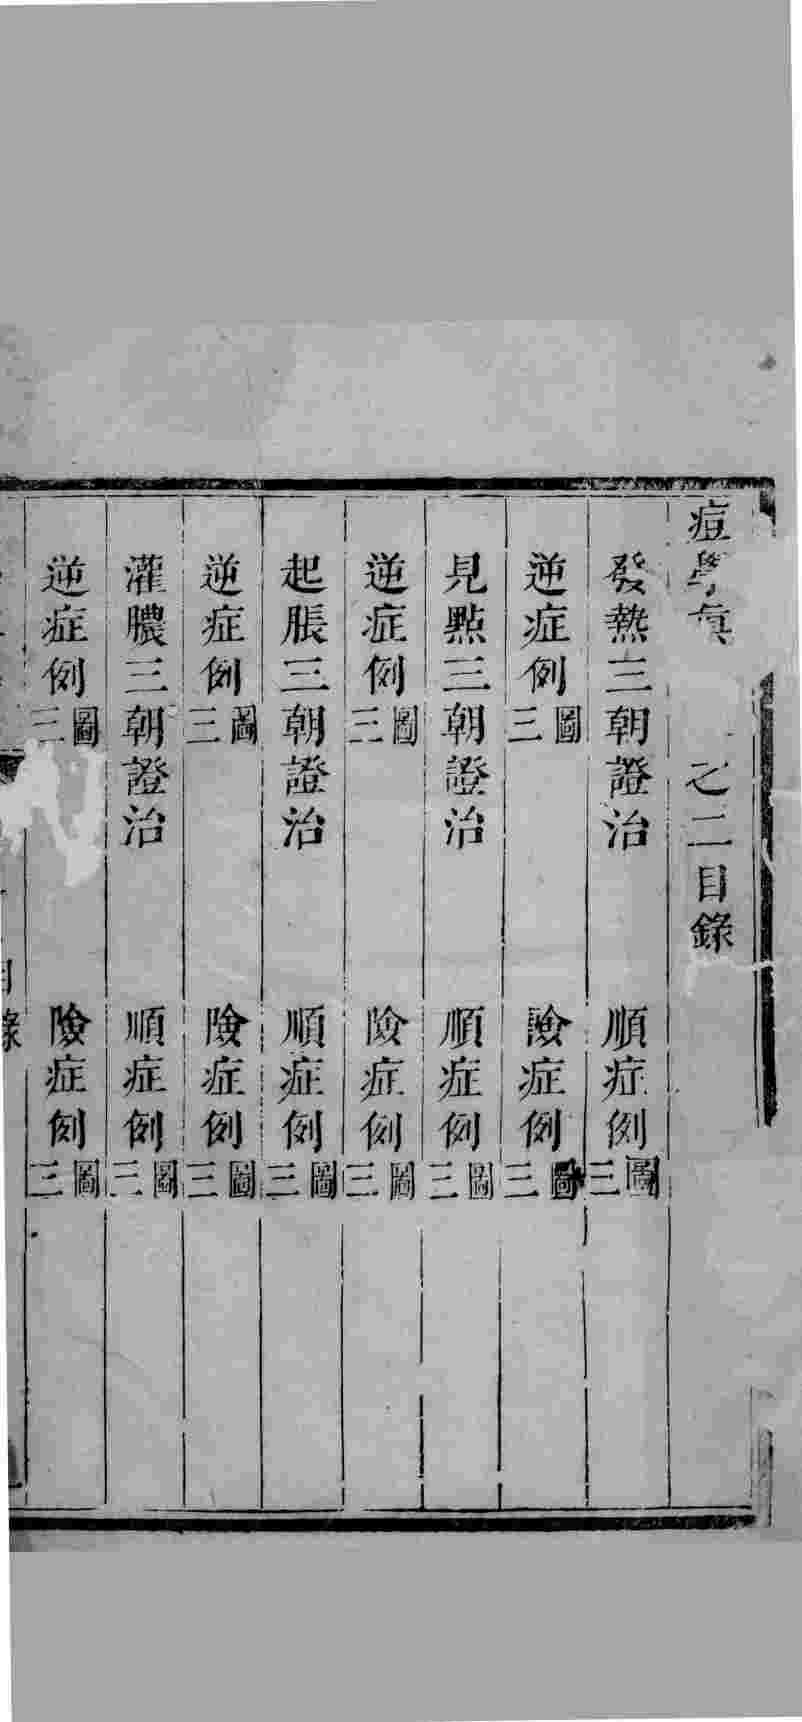 痘學真　之二目錄
發熱三朝證治　順症例三圖
逆症例三圖　險症例三圖
見點三朝證治　順症例三圖
逆症例三圖　險症例三圖
起脹三朝證治　順症例三圖
逆症例三圖　險症例三圖
灌膿三朝證治　順症例三圖
逆症例三圖　險症例三圖
目錄